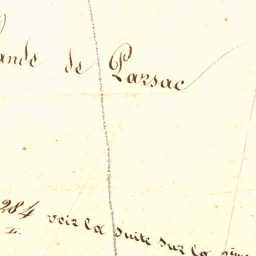 ande de Parsac
284 voir la suite sur la